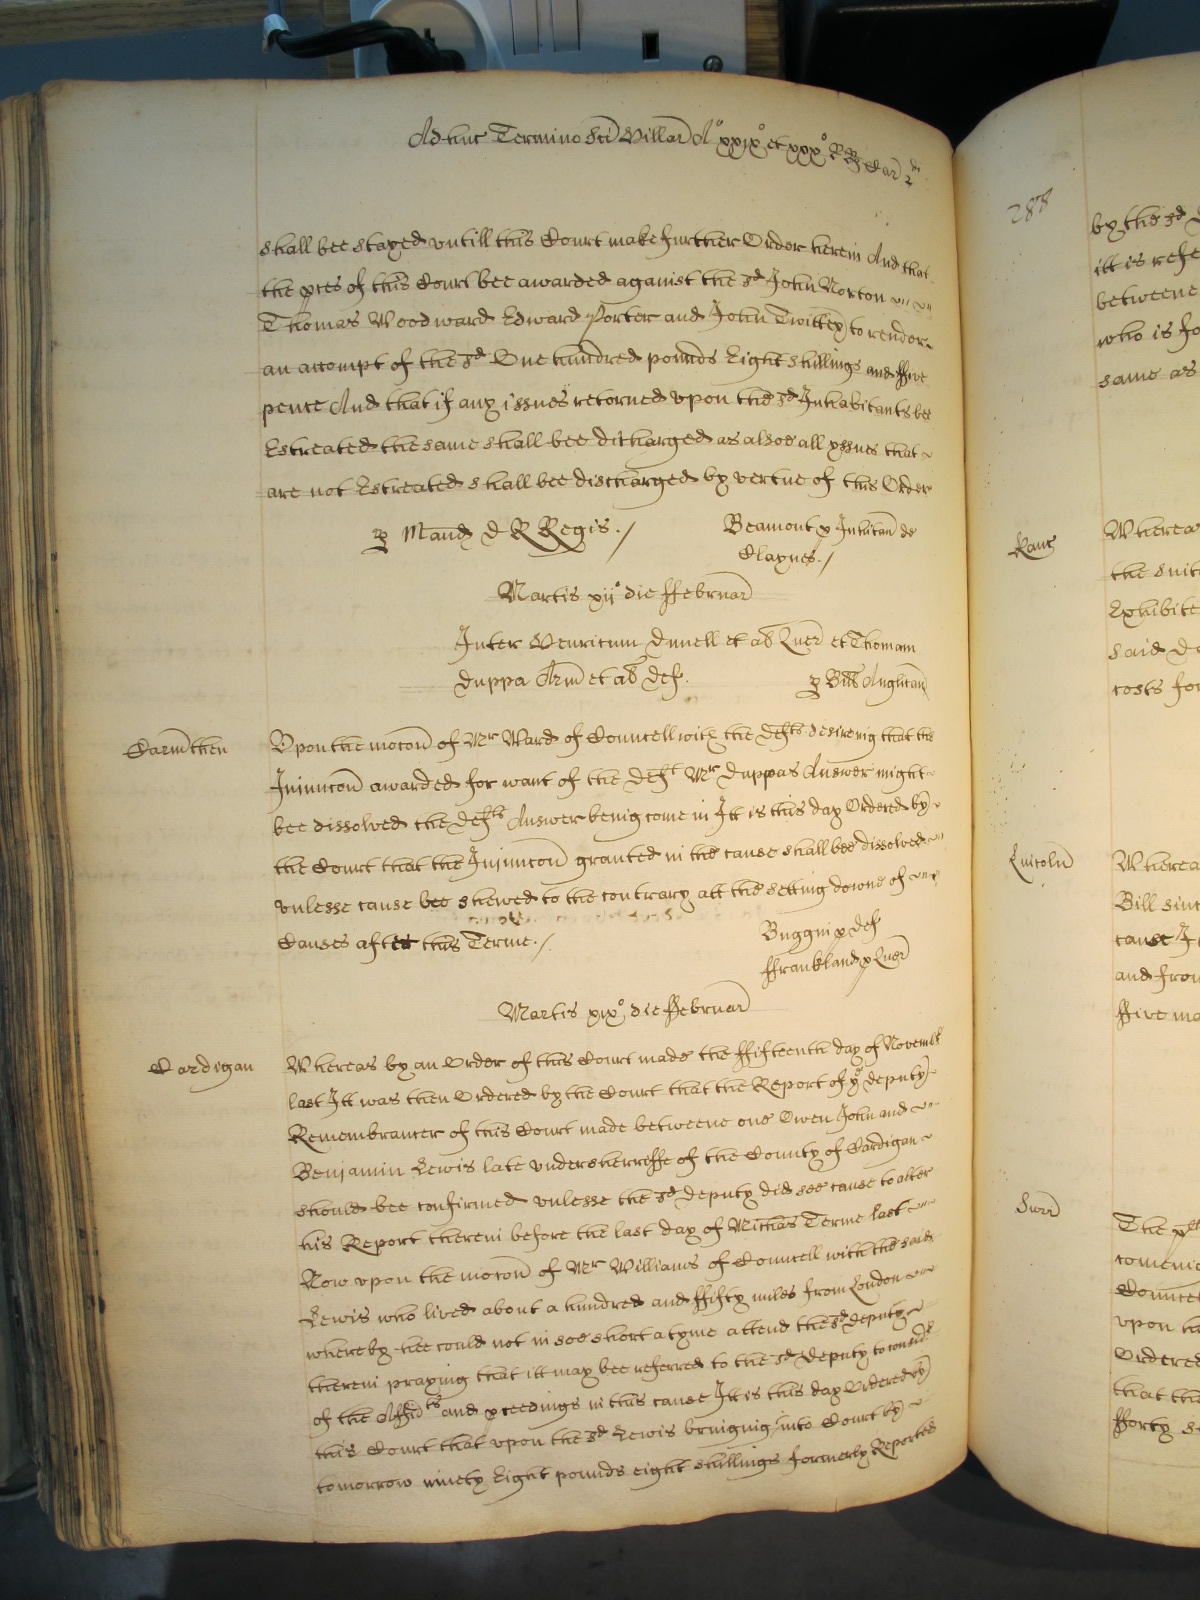 Adhuc Termino Sci Hillar A° xxix° et xxx° RRs Car 2di
shall bee stayed untill this Court make further Order herein And that
the pces of this Court bee awarded against the sd John Norton
Thomas Woodward Edward Porter and John Twitty to render
an accompt of the sd One hundred pounds Eight shillings and ffive
pence And that if any issues retorned upon the sd Inhabitants bee
Estreated the same shall bee discharged as alsoe all yssues that
are not Estreated shall bee discharged by vertue of this Order
p Mand D R Regis./
Beamont p Inhitan de
Claynes./
Martis xij° die ffebruar
Inter Henricum Dunell et al Quer et Thomam
Duppa Arm et al Def.
p Bill Anglican
Carmthen
Upon the mocon of Mr Ward of Councell with the Defts desireing that the
Injunccon awarded for want of the Deft Mr Duppas Answer might
bee dissolved the Defts Answer being come in Itt is this day Ordered by
the Court that the Injunccon granted in the cause shall bee dissolved
unlesse cause bee shewed to the contrary att the setting downe of
Causes after this Terme./
Buggin p Def
ffrankland p Quer
Martis xix° die ffebruar
Cardigan
Whereas by an Order of this Court made the ffifteenth day of Novemb
last Itt was then Ordered by the Court that the Report of ye deputy
Remembrancer of this Court made betweene one Owen John and
Benjamin Lewis late undersherriffe of the County of Cardigan
should bee confirmed unlesse the sd deputy did see cause to alter
his Report therein before the last day of Michas Terme last
Now upon the mocon of Mr Williams of Councell with the said
Lewis who lived about a hundred and ffifty miles from London
whereby hee could not in soe short a tyme attend the sd deputy
therein praying that itt may bee referred to the sd Deputy to consid
of the Affidts and pceedings in this cause Itt is this day Ordered by
this Court that upon the sd Lewis bringing into Court by
tomorrow ninety Eight pounds eight shillings formerly Reported
288
by the sd
itt is refe
betweene
who is fo
same as
Kanc
Wherea
the suit
Exhibite
said De
costs for
Lincoln
Wherea
Bill sinc
cause I
and from
ffive mo
Surr
The plt
comeing
Councel
upon h
Ordered
that the
fforty s